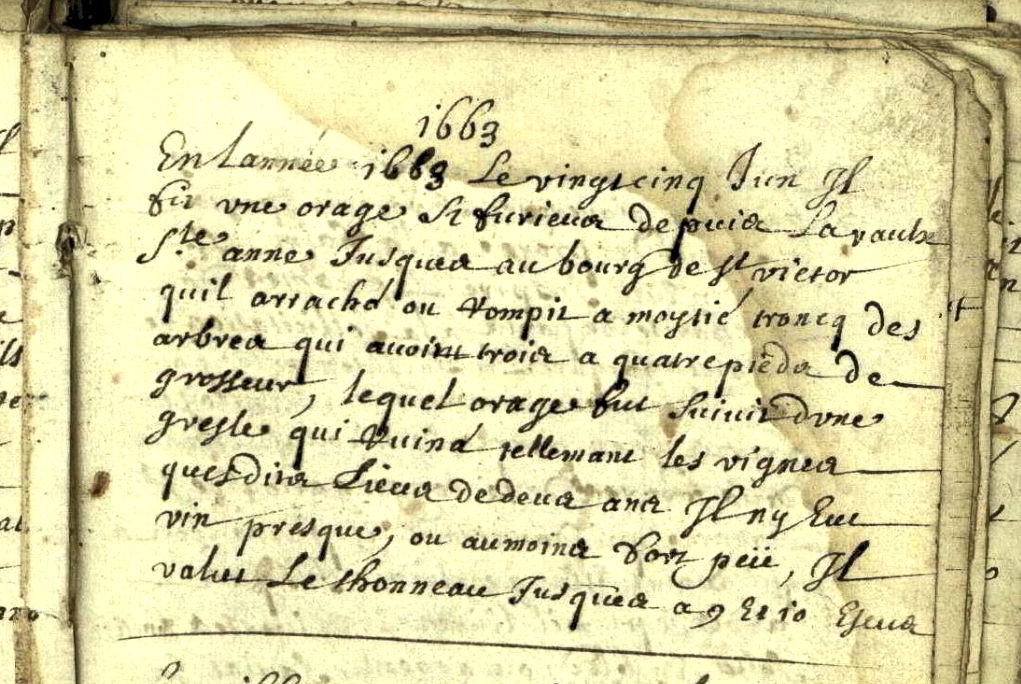 1663
En lannée 1663 Le vingtcinq Jun Il
fit vne orage Si furieux depuis Lavaulx
Ste anne Jusques au bourg de st victor
quil arrachá ou Rompit a moytié troncq des
arbres qui avoint trois a quatre pieds de
grosseur, lequel orage fut Suivit dvne
gresle qui Ruiná tellemant les vignes
quesdits Lieux de deux ans Il ny Eut
vin presque, ou aumoins fort peü, Il
valut Le thonneau Jusques a 9 Et 10 Escus